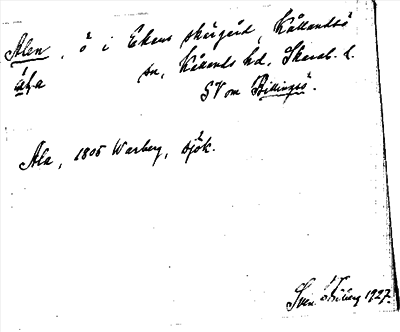 Alen, ö i Ekens skärgård, Kållandsö
åla sn, Kållands hd, Skarab. l.
SV om Billingsö.
Ala, 1805 Warberg, sjök.
Sven 1927.